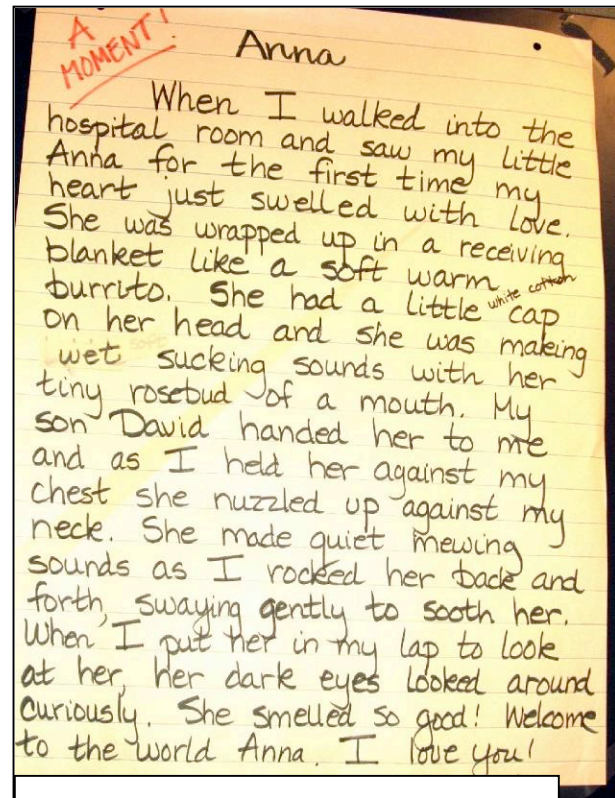 A
MOMENT!
Anna
When I walked into the
hospital room and saw my little
Anna for the first time my
heart just swelled with love.
She was wrapped up in a receiving
blanket like a soft warm
burrito. She had a little white cotton cap
on her head and she was making
wet sucking sounds with her
tiny rosebud of a mouth. My
son David handed her to me
and as I held her against my
chest she nuzzled up against my
neck. She made quiet mewing
sounds as I rocked her back and
forth, swaying gently to sooth her.
When I put her in my lap to look
at her, her dark eyes looked around
curiously. She smelled so good! Welcome
to the world Anna. I love you!